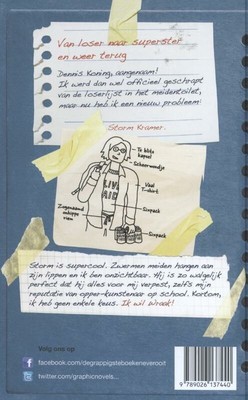 Van loser naar superster
en weer terug
Dennis Koning, aangenaam!
Ik werd dan wel officieel geschrapt
van de loserlijst in het meidentoilet,
maar nu heb ik een nieuw probleem:
Storm Kramer.
Te blits
kapsel
Scheermondje
Vaal
T-shirt
Sixpack
Sixpack
Sixpack
Storm is supercool. Zwermen meiden hangen aan
zijn lippen en ik ben onzichtbaar. Hij is zo walgelijk
perfect dat hij alles voor mij verpest, zelfs mijn
reputatie van opper-kunstenaar op school. Kortom,
ik heb geen enkele keus. Ik wil wraak!
Volg ons op
facebook.com/degrappigsteboekeneverooit
twitter.com/graphicnovels...
9 789026 137440